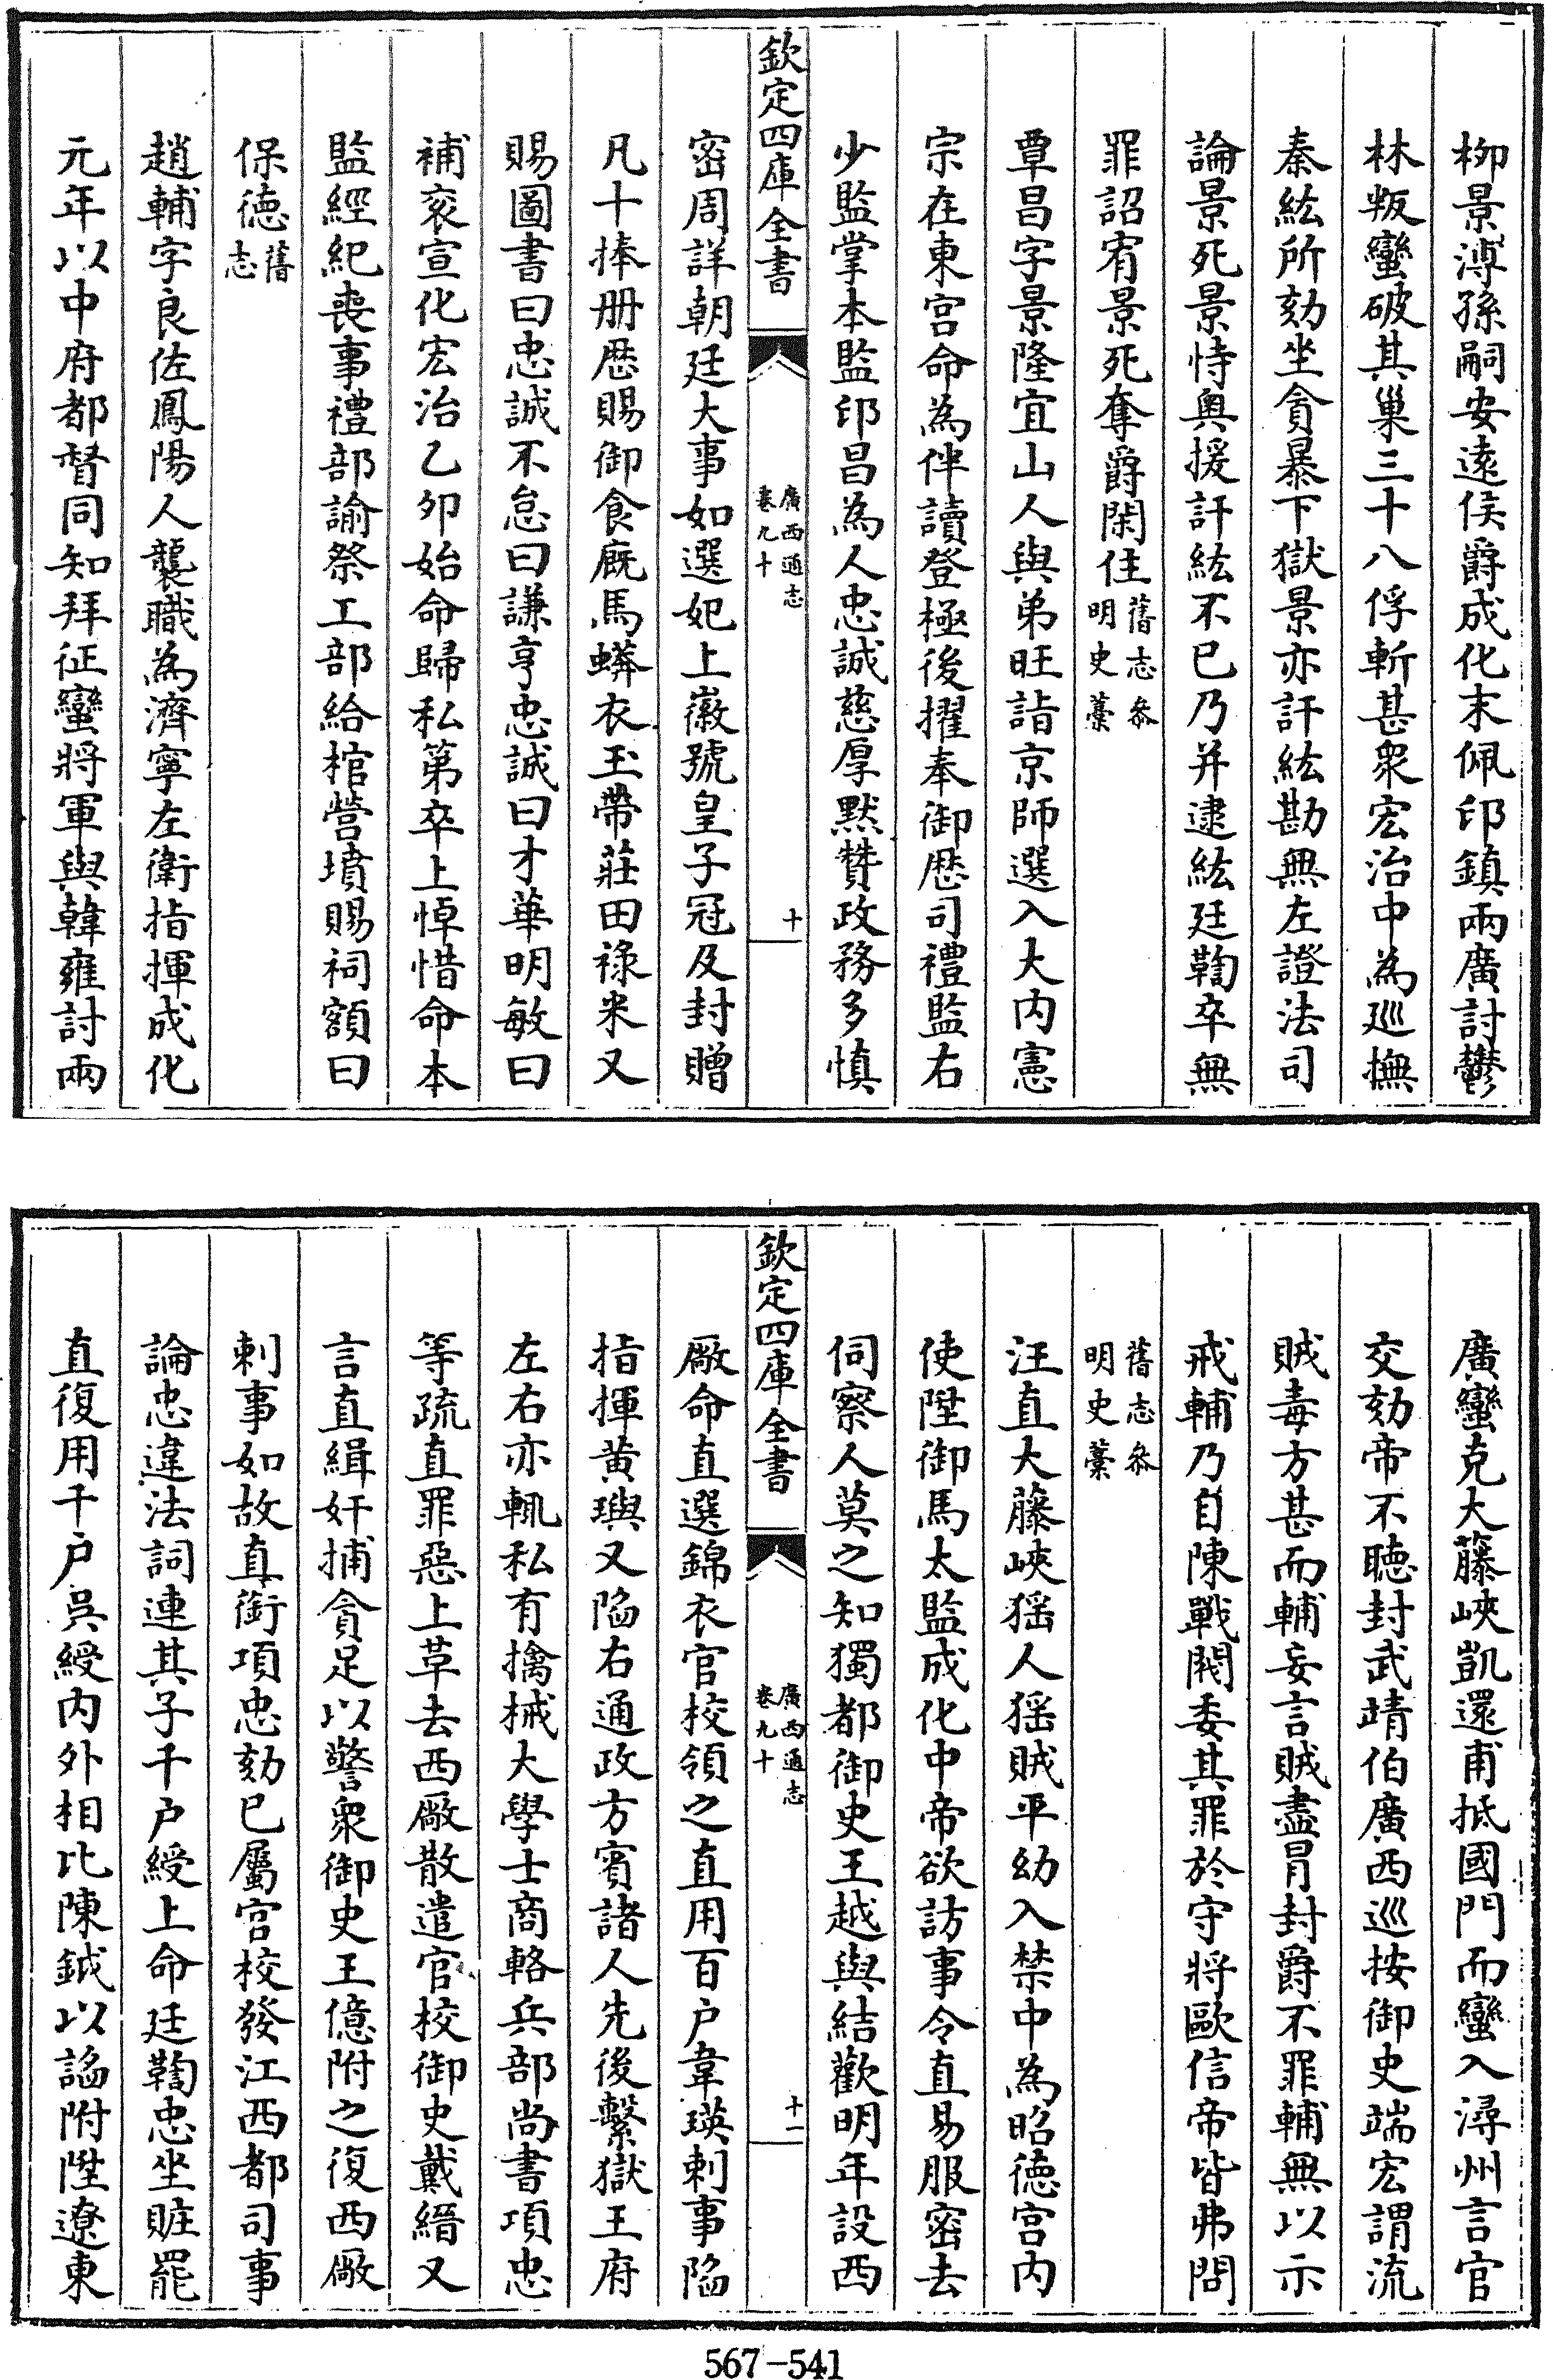 柳景溥孫嗣安遠侯爵成化末佩印鎮兩廣討鬱
林叛蠻破其巢三十八俘斬甚衆宏治中為巡撫
秦紘所劾坐貪暴下獄景亦訐紘勘無左證法司
論景死景恃奥援訐紘不已乃并逮紘廷鞫卒無
罪詔宥景死奪爵閑住舊志叅明史藁
覃昌字景隆宜山人與弟旺詣京師選入大内憲
宗在東宫命為伴讀登極後擢奉御歴司禮監右
少監掌本監印昌為人忠誠慈厚默贊政務多慎
欽定四庫全書 廣西通志卷九十 十
密周詳朝廷大事如選妃上徽號皇子冠及封贈
凡十捧册歴賜御食廐馬蟒衣玉帶莊田祿米又
賜圖書曰忠誠不怠曰謙亨忠誠曰才華明敏曰
補衮宣化宏治乙卯始命歸私第卒上悼惜命本
監經紀喪事禮部諭祭工部給棺營墳賜祠額曰
保德舊志
趙輔字良佐鳳陽人襲職為濟寧左衛指揮成化
元年以中府都督同知拜征蠻將軍與韓雍討兩
廣蠻克大藤峽凱還甫抵國門而蠻入潯州言官
交劾帝不聴封武靖伯廣西巡按御史端宏謂流
賊毒方甚而輔妄言賊盡冒封爵不罪輔無以示
戒輔乃自陳戰閥委其罪於守將歐信帝皆弗問
舊志叅明史藁
汪直大藤峽猺人猺賊平幼入禁中為昭德宫内
使陞御馬太監成化中帝欲訪事令直易服密去
伺察人莫之知獨都御史王越與結歡明年設西
欽定四庫全書 廣西通志卷九十 十一
廠命直選錦衣官校領之直用百户韋瑛刺事陷
指揮黄璵又陷右通政方賓諸人先後繫獄王府
左右亦輒私有擒械大學士商輅兵部尚書項忠
等疏直罪惡上革去西廠散遣官校御史戴縉又
言直緝奸捕貪足以警衆御史王億附之復西廠
刺事如故直銜項忠劾已屬官校發江西都司事
論忠違法詞連其子千户綬上命廷鞫忠坐贓罷
直復用千户吳綬内外相比陳鉞以謟附陞遼東
567-541